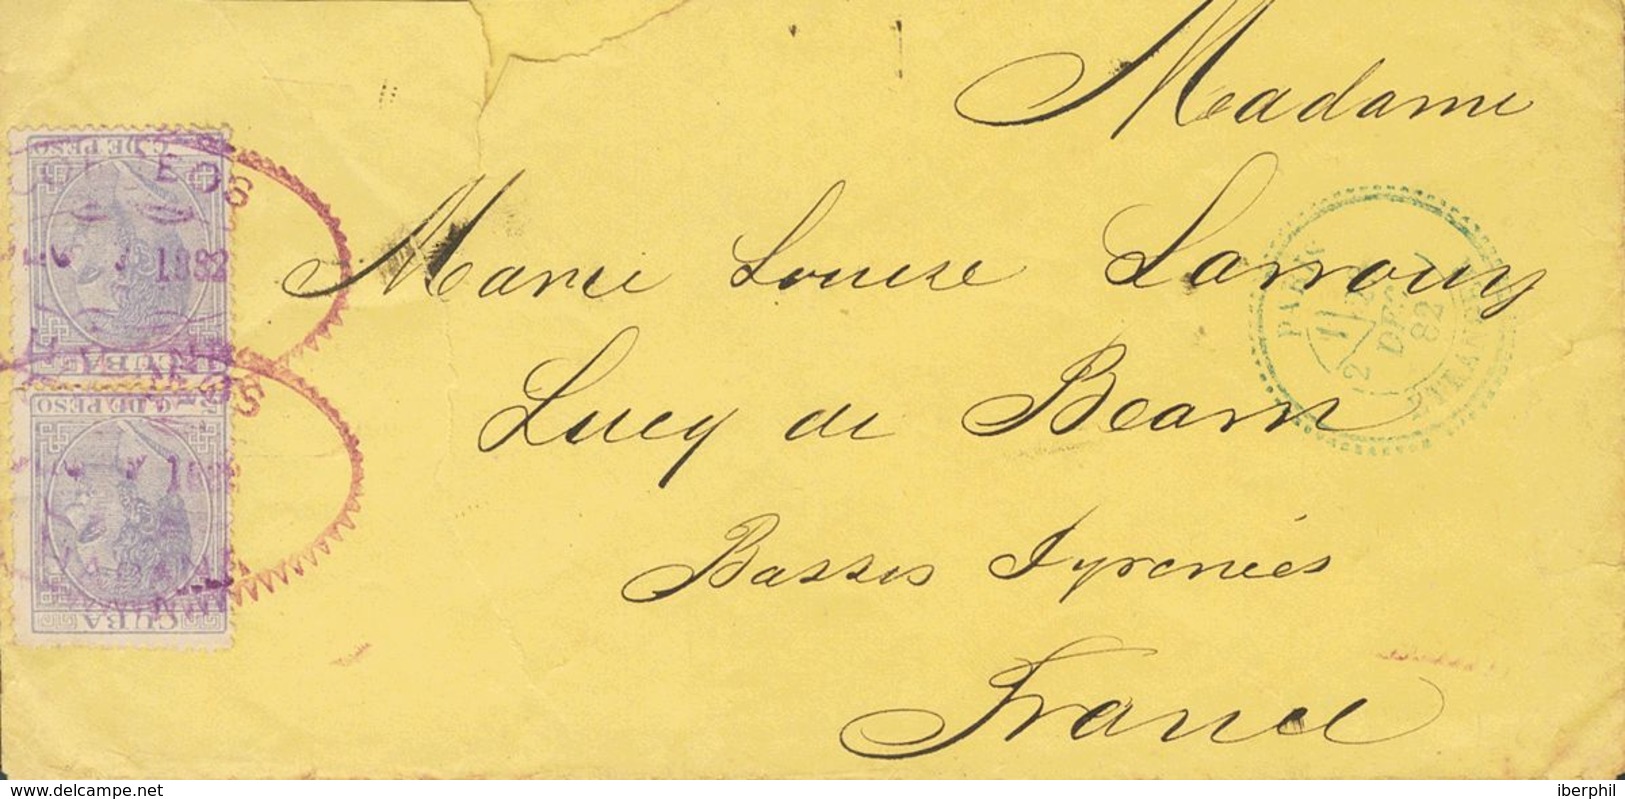 Madame
Marie Louise Larrouy
Lucq de Bearn
Basses Pyrenées
France
C. DE PESO
CORREOS
1882
CUBA
C. DE PESO
1882
CUBA
PARIS
DEC
82
ETRANGER
www.delcampe.net
iberphil